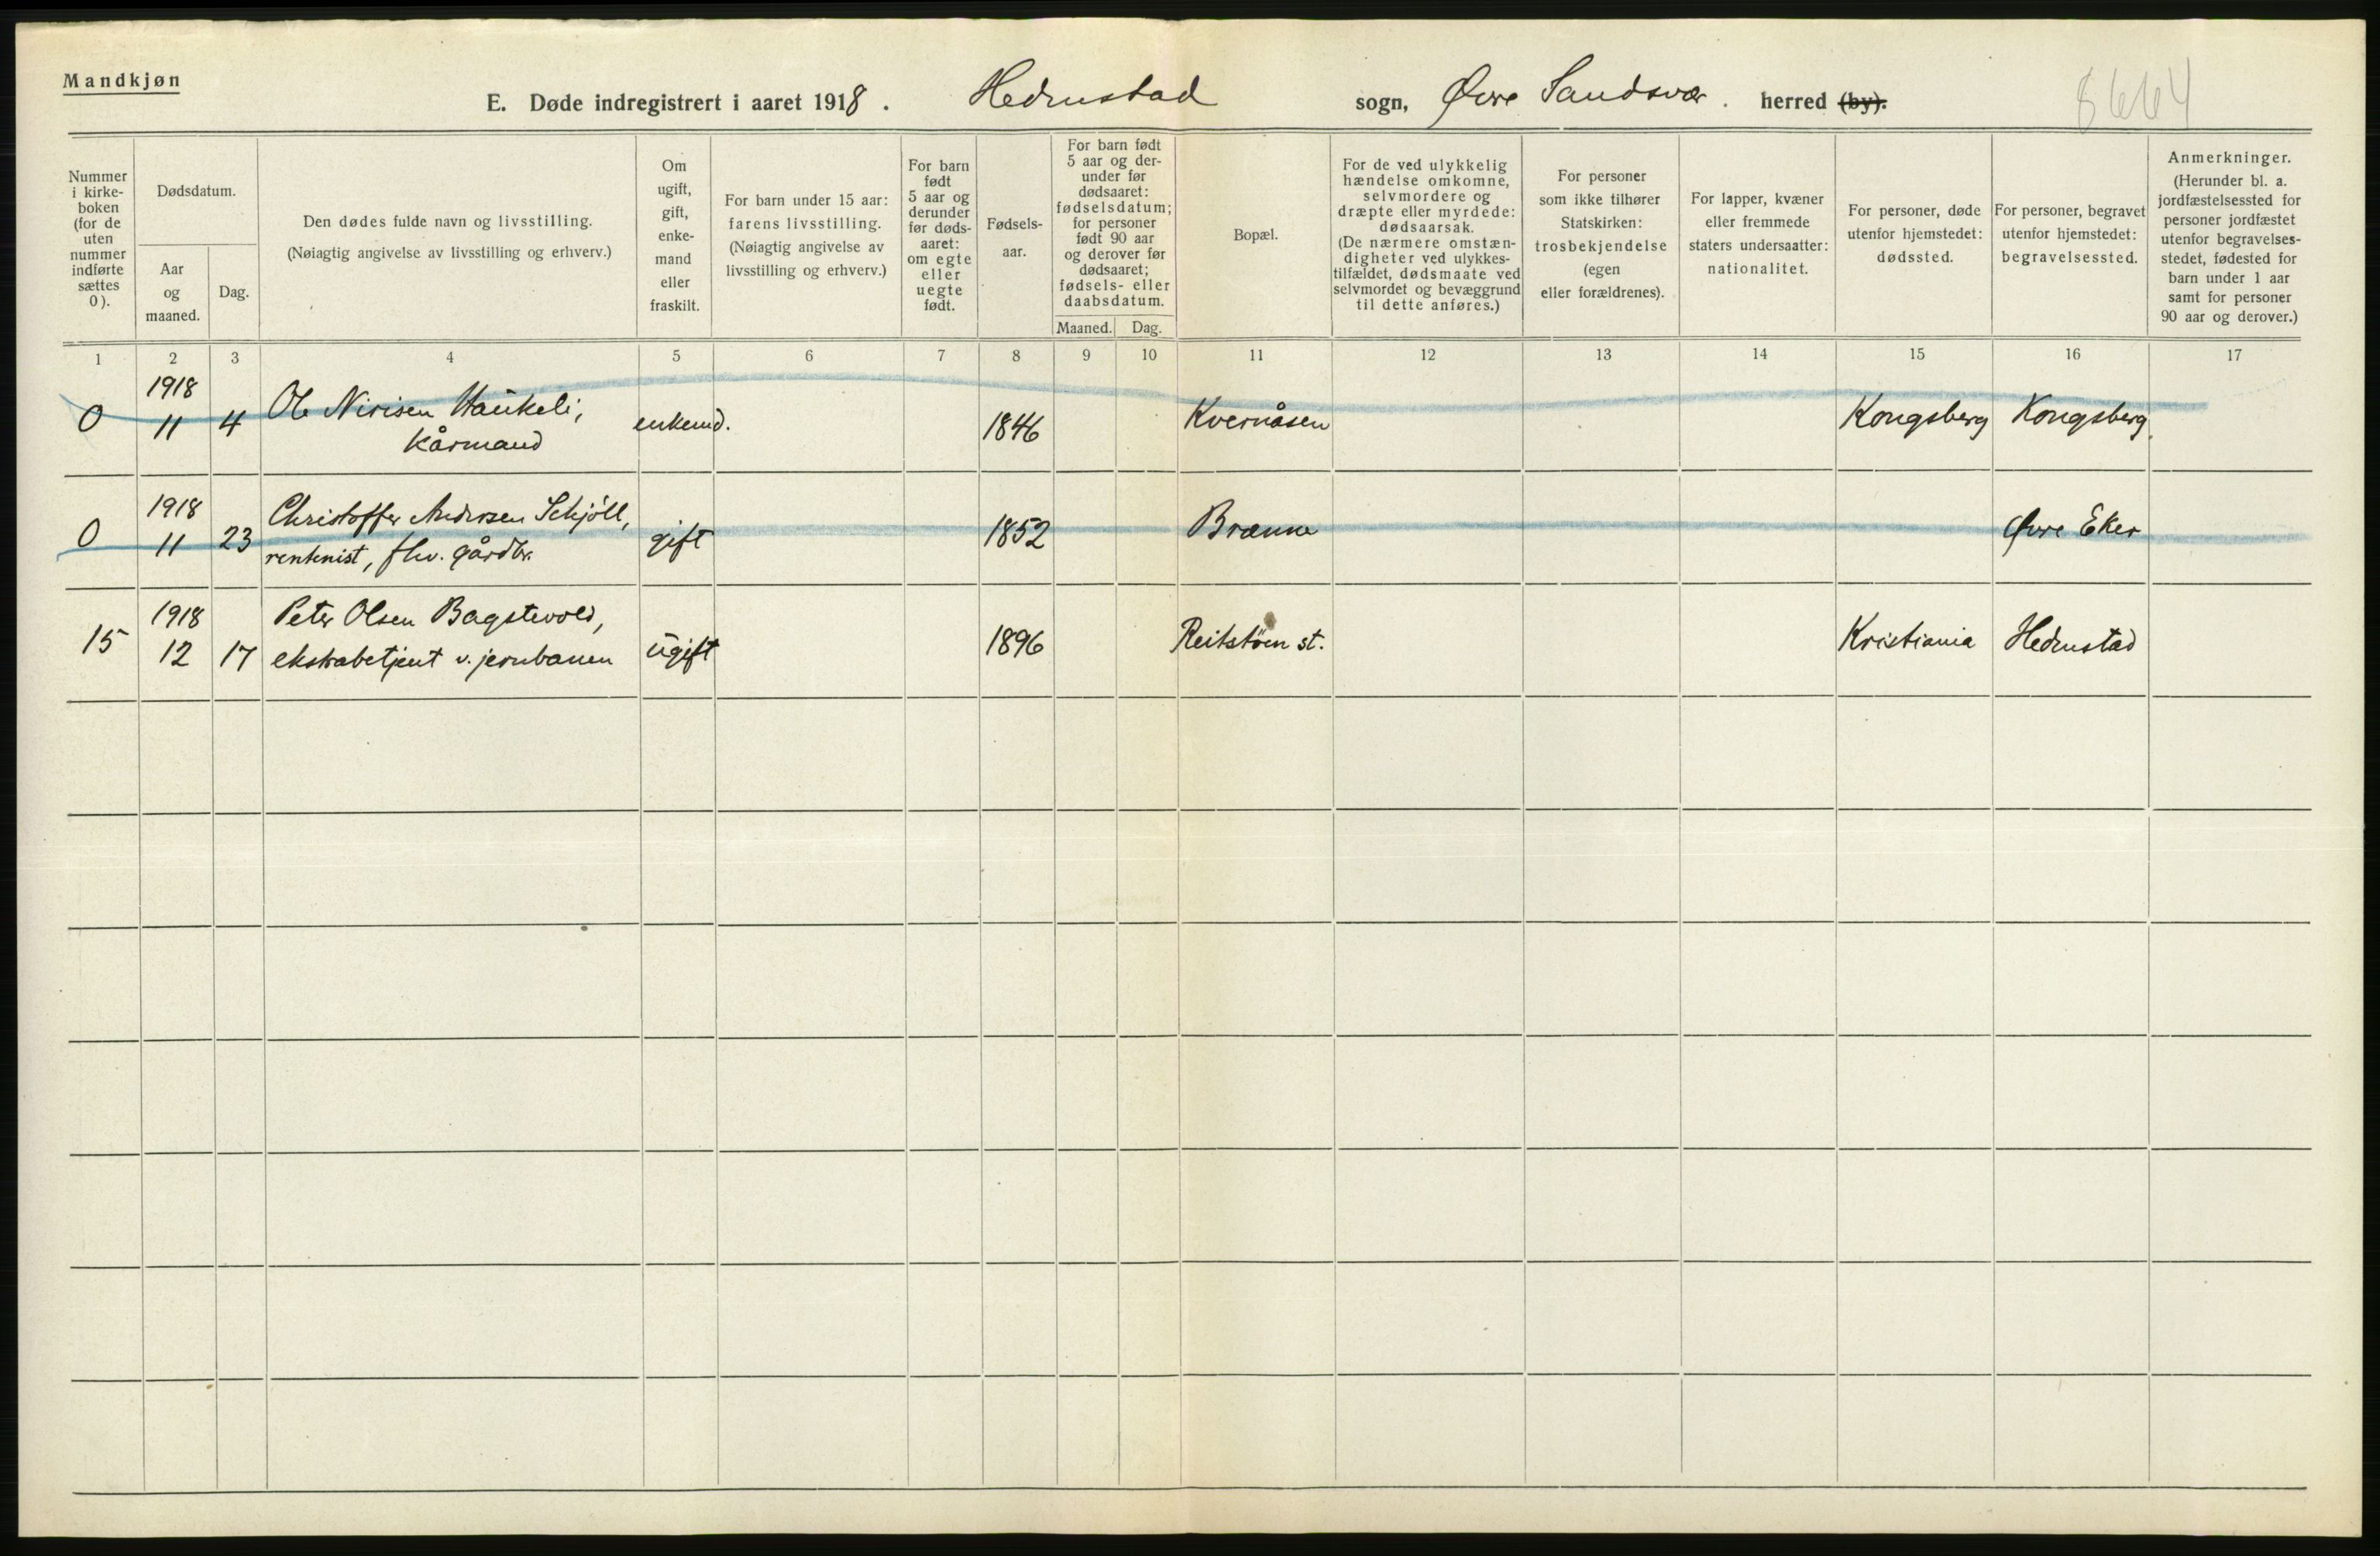 Mandkjøn
E. Døde indregistrert i aaret 1918. Hedenstad sogn, Øvre Sandsvær. herred (by).
8664
Nummer i kirke-boken (for de uten nummer indførte sættes 0).
Dødsdatum.
Aar og maaned.
Dag.
Den dødes fulde navn og livsstilling.
(Nøiagtig angivelse av livsstilling og erhverv.)
Om ugift, gift, enke-mand eller fraskilt.
For barn under 15 aar: farens livsstilling. (Nøiagtig angivelse av livsstilling og erhverv.)
For barn født 5 aar og derunder før døds-aaret: om egte eller uegte født.
Fødsels-aar.
For barn født 5 aar og der-under før dødsaaret: fødselsdatum; for personer født 90 aar og derover før dødsaaret; fødsels- eller daabsdatum.
Maaned. Dag.
Bopæl.
For de ved ulykkelig hændelse omkomne, selvmordere og dræpte eller myrdede: dødsaarsak. (De nærmere omstæn-digheter ved ulykkes-tilfældet, dødsmaate ved selvmordet og bevæggrund til dette anføres.)
For personer som ikke tilhører Statskirken: trosbekjendelse (egen eller forældrenes).
For lapper, kvæner eller fremmede staters undersaatter: nationalitet.
For personer, døde utenfor hjemstedet: dødssted.
For personer, begravet utenfor hjemstedet: begravelsessted.
Anmerkninger. (Herunder bl. a. jordfæstelsessted for personer jordfæstet utenfor begravelses-stedet, fødested for barn under 1 aar samt for personer 90 aar og derover.)
1 2 3 4 5 6 7 8 9 10 11 12 13 14 15 16 17
1918
0 11 4 Ole Nirisen Haukeli, enkemd. 1846 Kvernåsen Kongsberg Kongsberg.
Kårmand
1918
0 11 23 Christoffer Andersen Schjöll, gift 1852 Brænne Øvre Eker
rentenist, fhv. gårdbr.
1918
15 12 17 Peter Olsen Bagstevold, ugift 1896 Reitstöen st. Kristiania Hedenstad
ekstrabetjent v. jernbanen